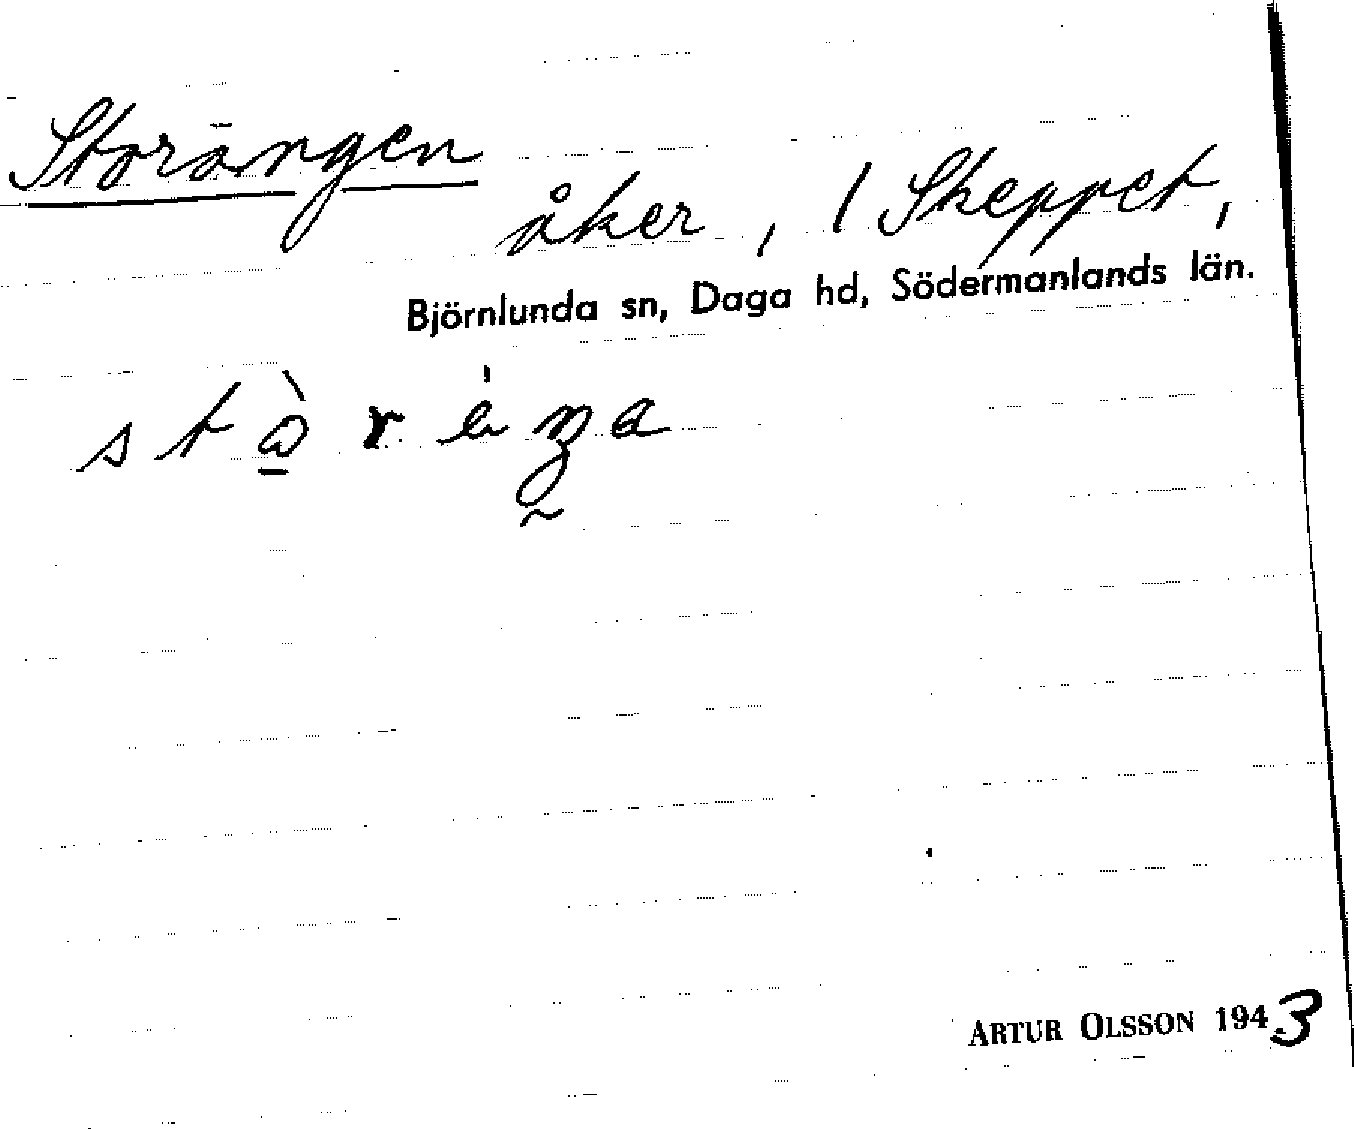 Storängen
åker, 1 Skeppet,
Björnlunda sn, Daga hd, Södermanlands län.
ARTUR OLSSON 1943